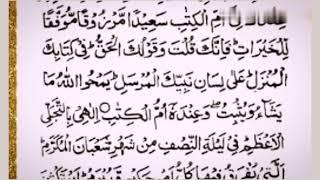 اُمِّ الْكِتٰبِ سَعِيْدًا مَّرْزُوْقًا مُّوَفَّقًا
لِّلْخَيْرَاتِ فَاِنَّكَ قُلْتَ وَقَوْلُكَ الْحَقُّ فِيْ كِتَابِكَ
الْمُنَزَّلِ عَلٰى لِسَانِ نَبِيِّكَ الْمُرْسَلِ يَمْحُوا اللهُ مَا
يَشَآءُ وَيُثْبِتُ وَعِنْدَهٗ اُمُّ الْكِتٰبِ ○ اِلٰهِيْ بِالتَّجَلِّي
الْاَعْظَمِ فِيْ لَيْلَةِ النِّصْفِ مِنْ شَهْرِ شَعْبَانَ الْمُكَرَّمِ
الَّتِيْ يُفْرَقُ فِيْهَا كُلُّ اَمْرٍ